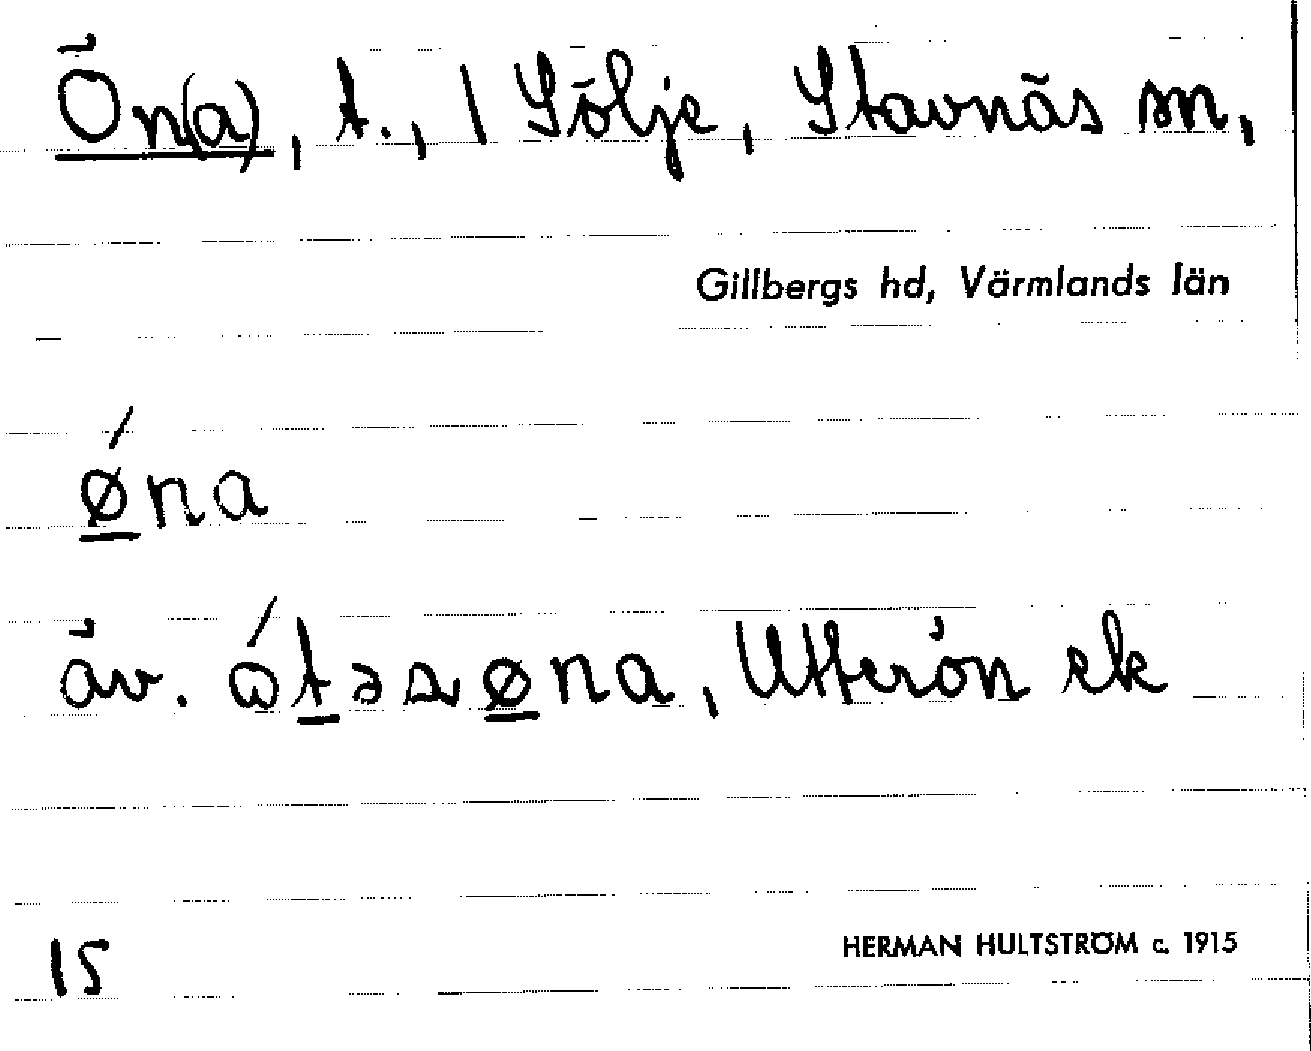 Ön(a), t., 1 Sölje, Stavnäs sn,
Gillbergs hd, Värmlands län
ǿna
äv. ɷ́təsøna, Utterön ek
15
HERMAN HULTSTRÖM c. 1915